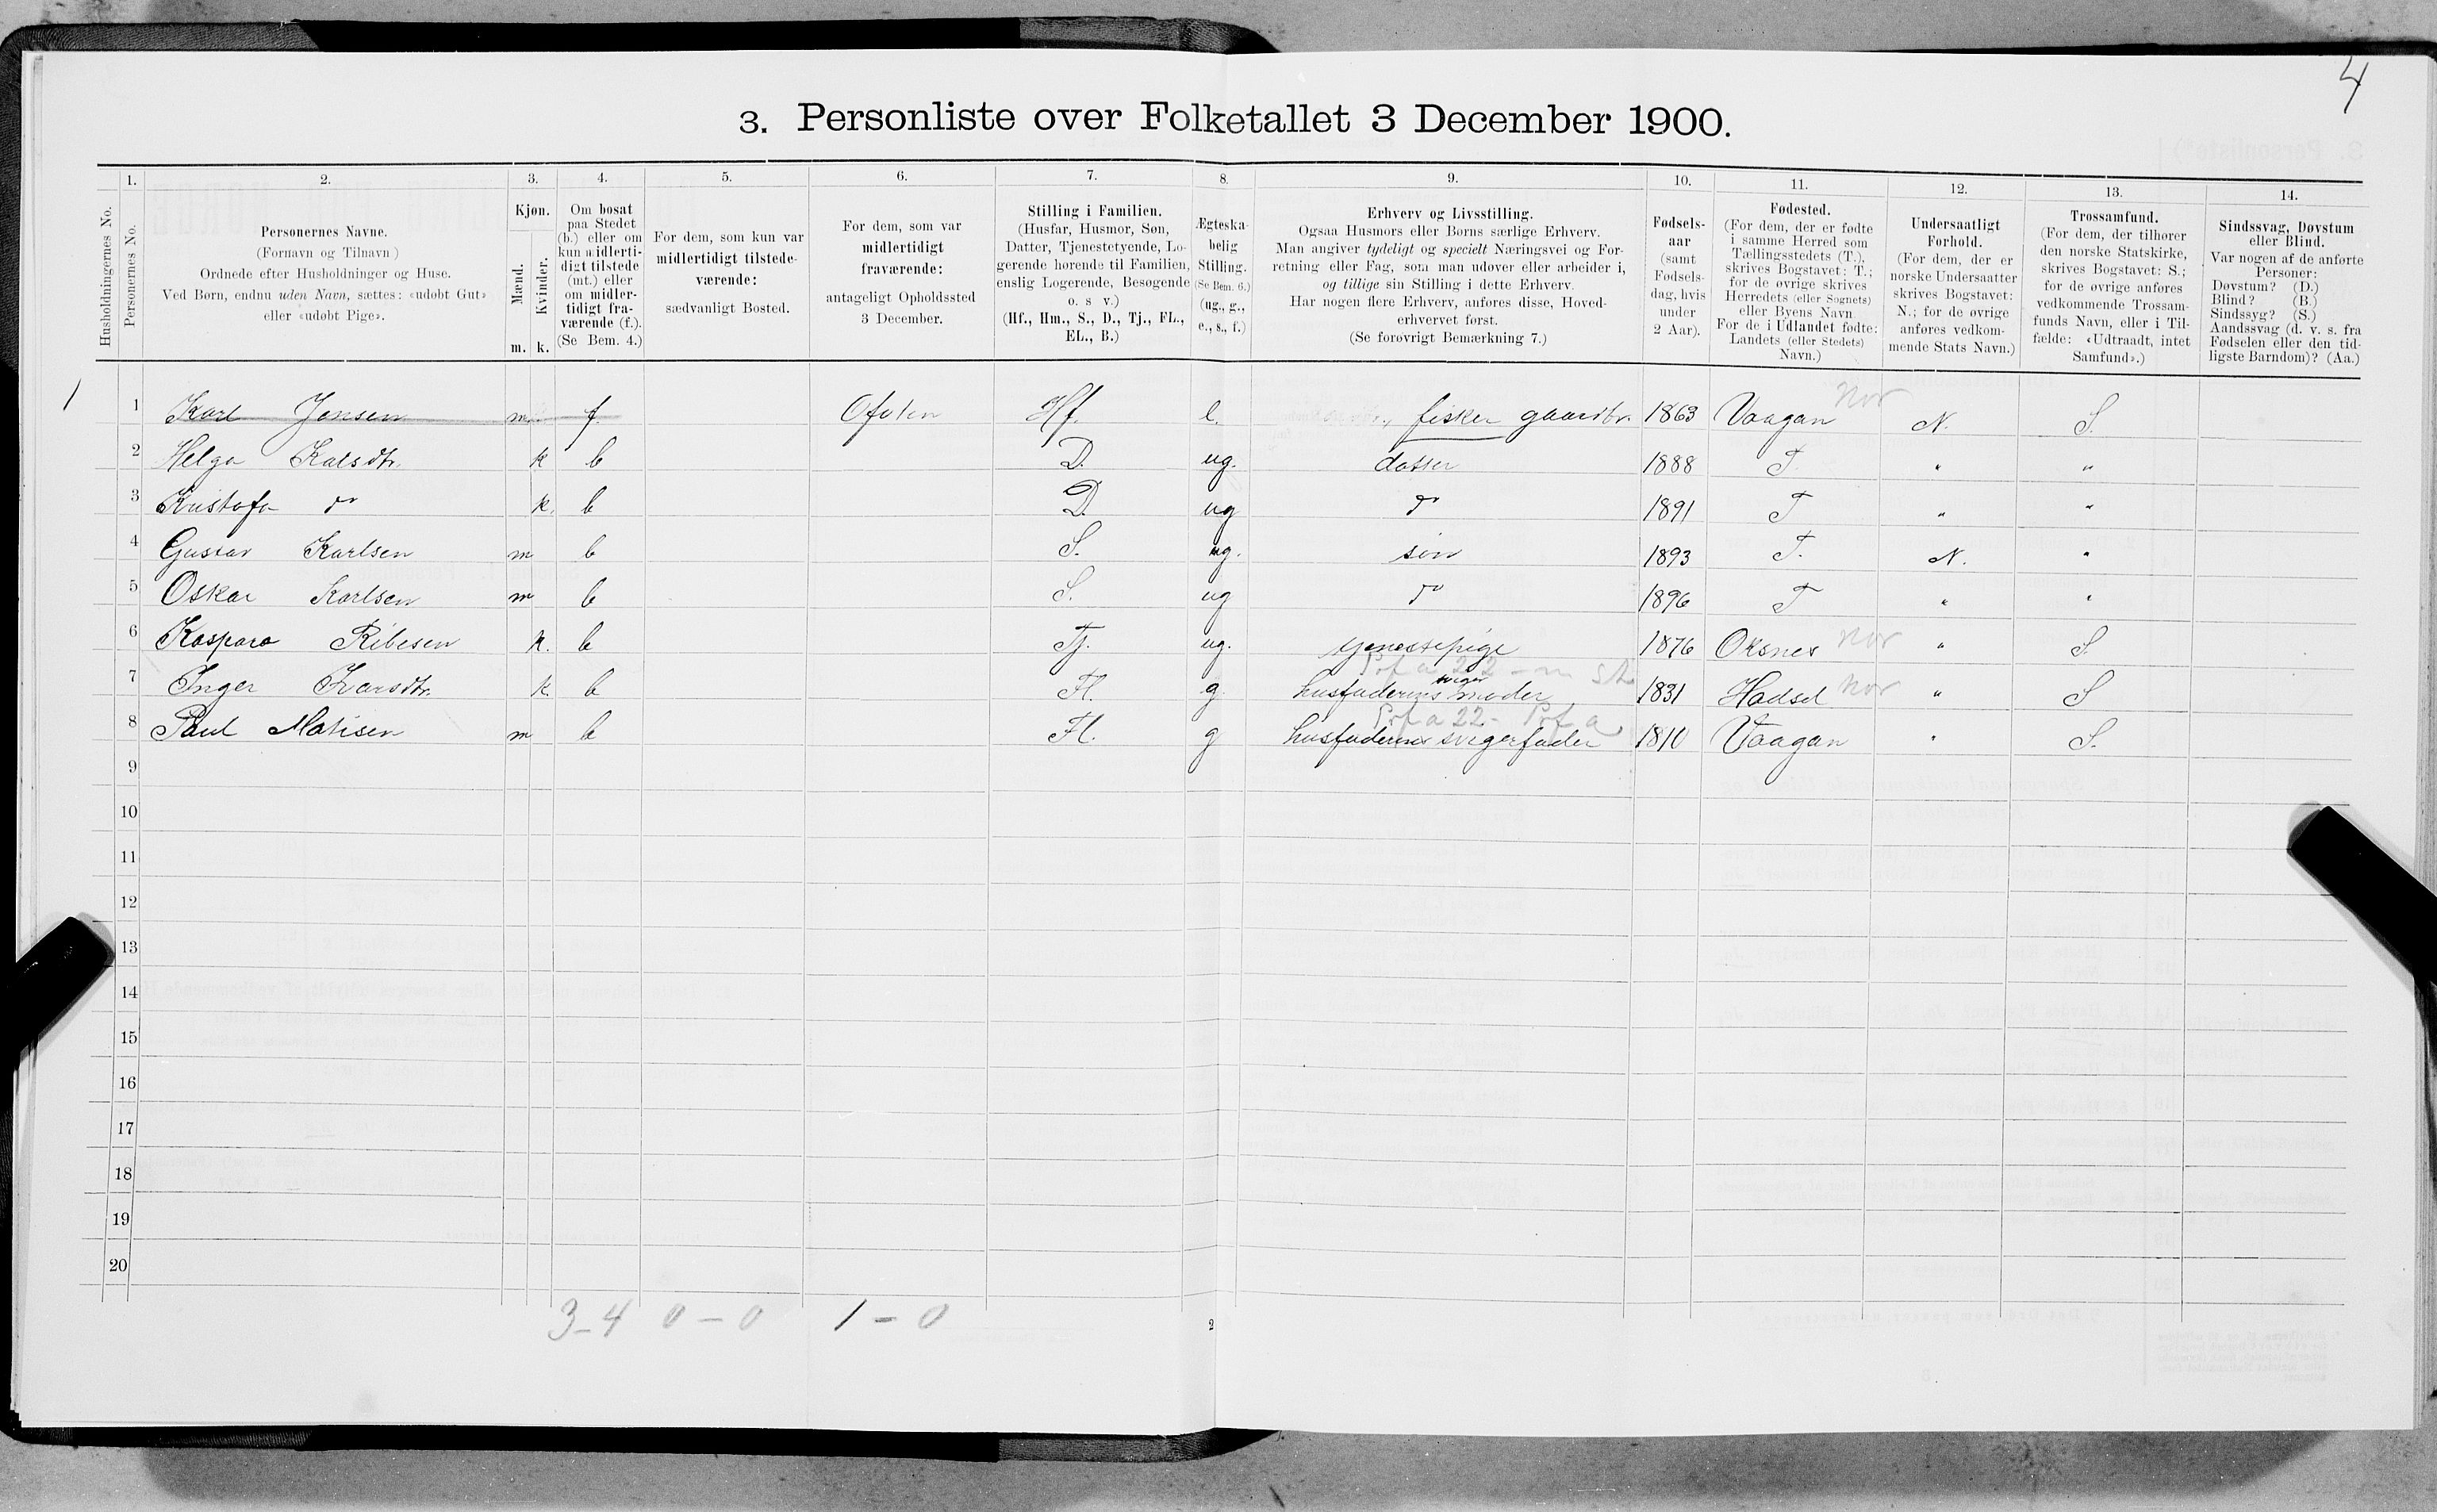 4
3. Personliste over Folketallet 3 December 1900.
1. 2. 3. 4. 5. 6. 7. 8. 9. 10. 11. 12. 13. 14.
Husholdningernes No.
Personernes No.
Personernes Navne.
(Fornavn og Tilnavn)
Ordnede efter Husholdninger og Huse.
Ved Børn, endnu uden Navn, sættes: «udøbt Gut»
eller «udøbt Pige».
Kjøn.
Mænd.
Kvinder.
m. k.
Om bosat
paa Stedet
(b.) eller om
kun midlerti-
digt tilstede
(mt.) eller
om midler-
tidigt fra-
værende (f.).
(Se Bem. 4.)
For dem, som kun var
midlertidigt tilstede-
værende:
sædvanligt Bosted.
For dem, som var
midlertidigt
fraværende:
antageligt Opholdssted
3 December.
Stilling i Familien.
(Husfar, Husmor, Søn,
Datter, Tjenestetyende, Lo-
gerende hørende til Familien,
enslig Logerende, Besøgende
o. s v.)
(Hf., Hm., S., D., Tj., FL.,
EL., B.)
Ægteska-
belig
Stilling.
(Se Bem. 6.)
(ug., g.,
e., s., f.)
Erhverv og Livsstilling.
Ogsaa Husmors eller Børns særlige Erhverv.
Man angiver tydeligt og specielt Næringsvei og For-
retning eller Fag, som man udøver eller arbeider i,
og tillige sin Stilling i dette Erhverv.
Har nogen flere Erhverv, anføres disse, Hoved-
erhvervet først.
(Se forøvrigt Bemærkning 7.)
Fødsels-
aar
(samt
Fødsels-
dag, hvis
under
2 Aar).
Fødested.
(For dem, der er fødte
i samme Herred som
Tællingsstedets (T.),
skrives Bogstavet: T.;
for de øvrige skrives
Herredets (eller Sognets)
eller Byens Navn
For de i Udlandet fødte:
Landets (eller Stedets)
Navn.)
Undersaatligt
Forhold.
(For dem, der er
norske Undersaatter
skrives Bogstavet:
N.; for de øvrige
anføres vedkom-
mende Stats Navn.)
Trossamfund.
(For dem, der tilhører
den norske Statskirke,
skrives Bogstavet: S.;
for de øvrige anføres
vedkommende Trossam-
funds Navn, eller i Til-
fælde: «Udtraadt, intet
Samfund».)
Sindssvag, Døvstum
eller Blind.
Var nogen af de anførte
Personer:
Døvstum? (D.)
Blind? (B.)
Sindssyg? (S.)
Aandssvag (d. v. s. fra
Fødselen eller den tid-
ligste Barndom)? (Aa.)
1 1 Karl Jensen m. f. Ofoten Hf. e. fisker gaardbr. 1863 Vaagan Nor N. S.
2 Helga Kalsdtr. k b D. ug. datter 1888 T. " "
3 Kristofa do k. b D. ug do 1891 T " "
4 Gustav Karlsen m b S. ug. søn 1893 T. N. "
5 Oskar Karlsen m b S. ug do 1896 T " "
6 Kaspara Ribesen k. b Tj. ug. 1876 Oksnes Nor " S.
7 Inger Ivarsdtr. k b Fl. g. husfaderens sviger moder 1831 Hadsel Nor " S
8 Paul Matisen m b Fl. g husfaderens svigerfader 1810 Vaagan " S.
9
10
11
12
13
14
15
16
17
18
19
20
3-4 0-0 1-0
2